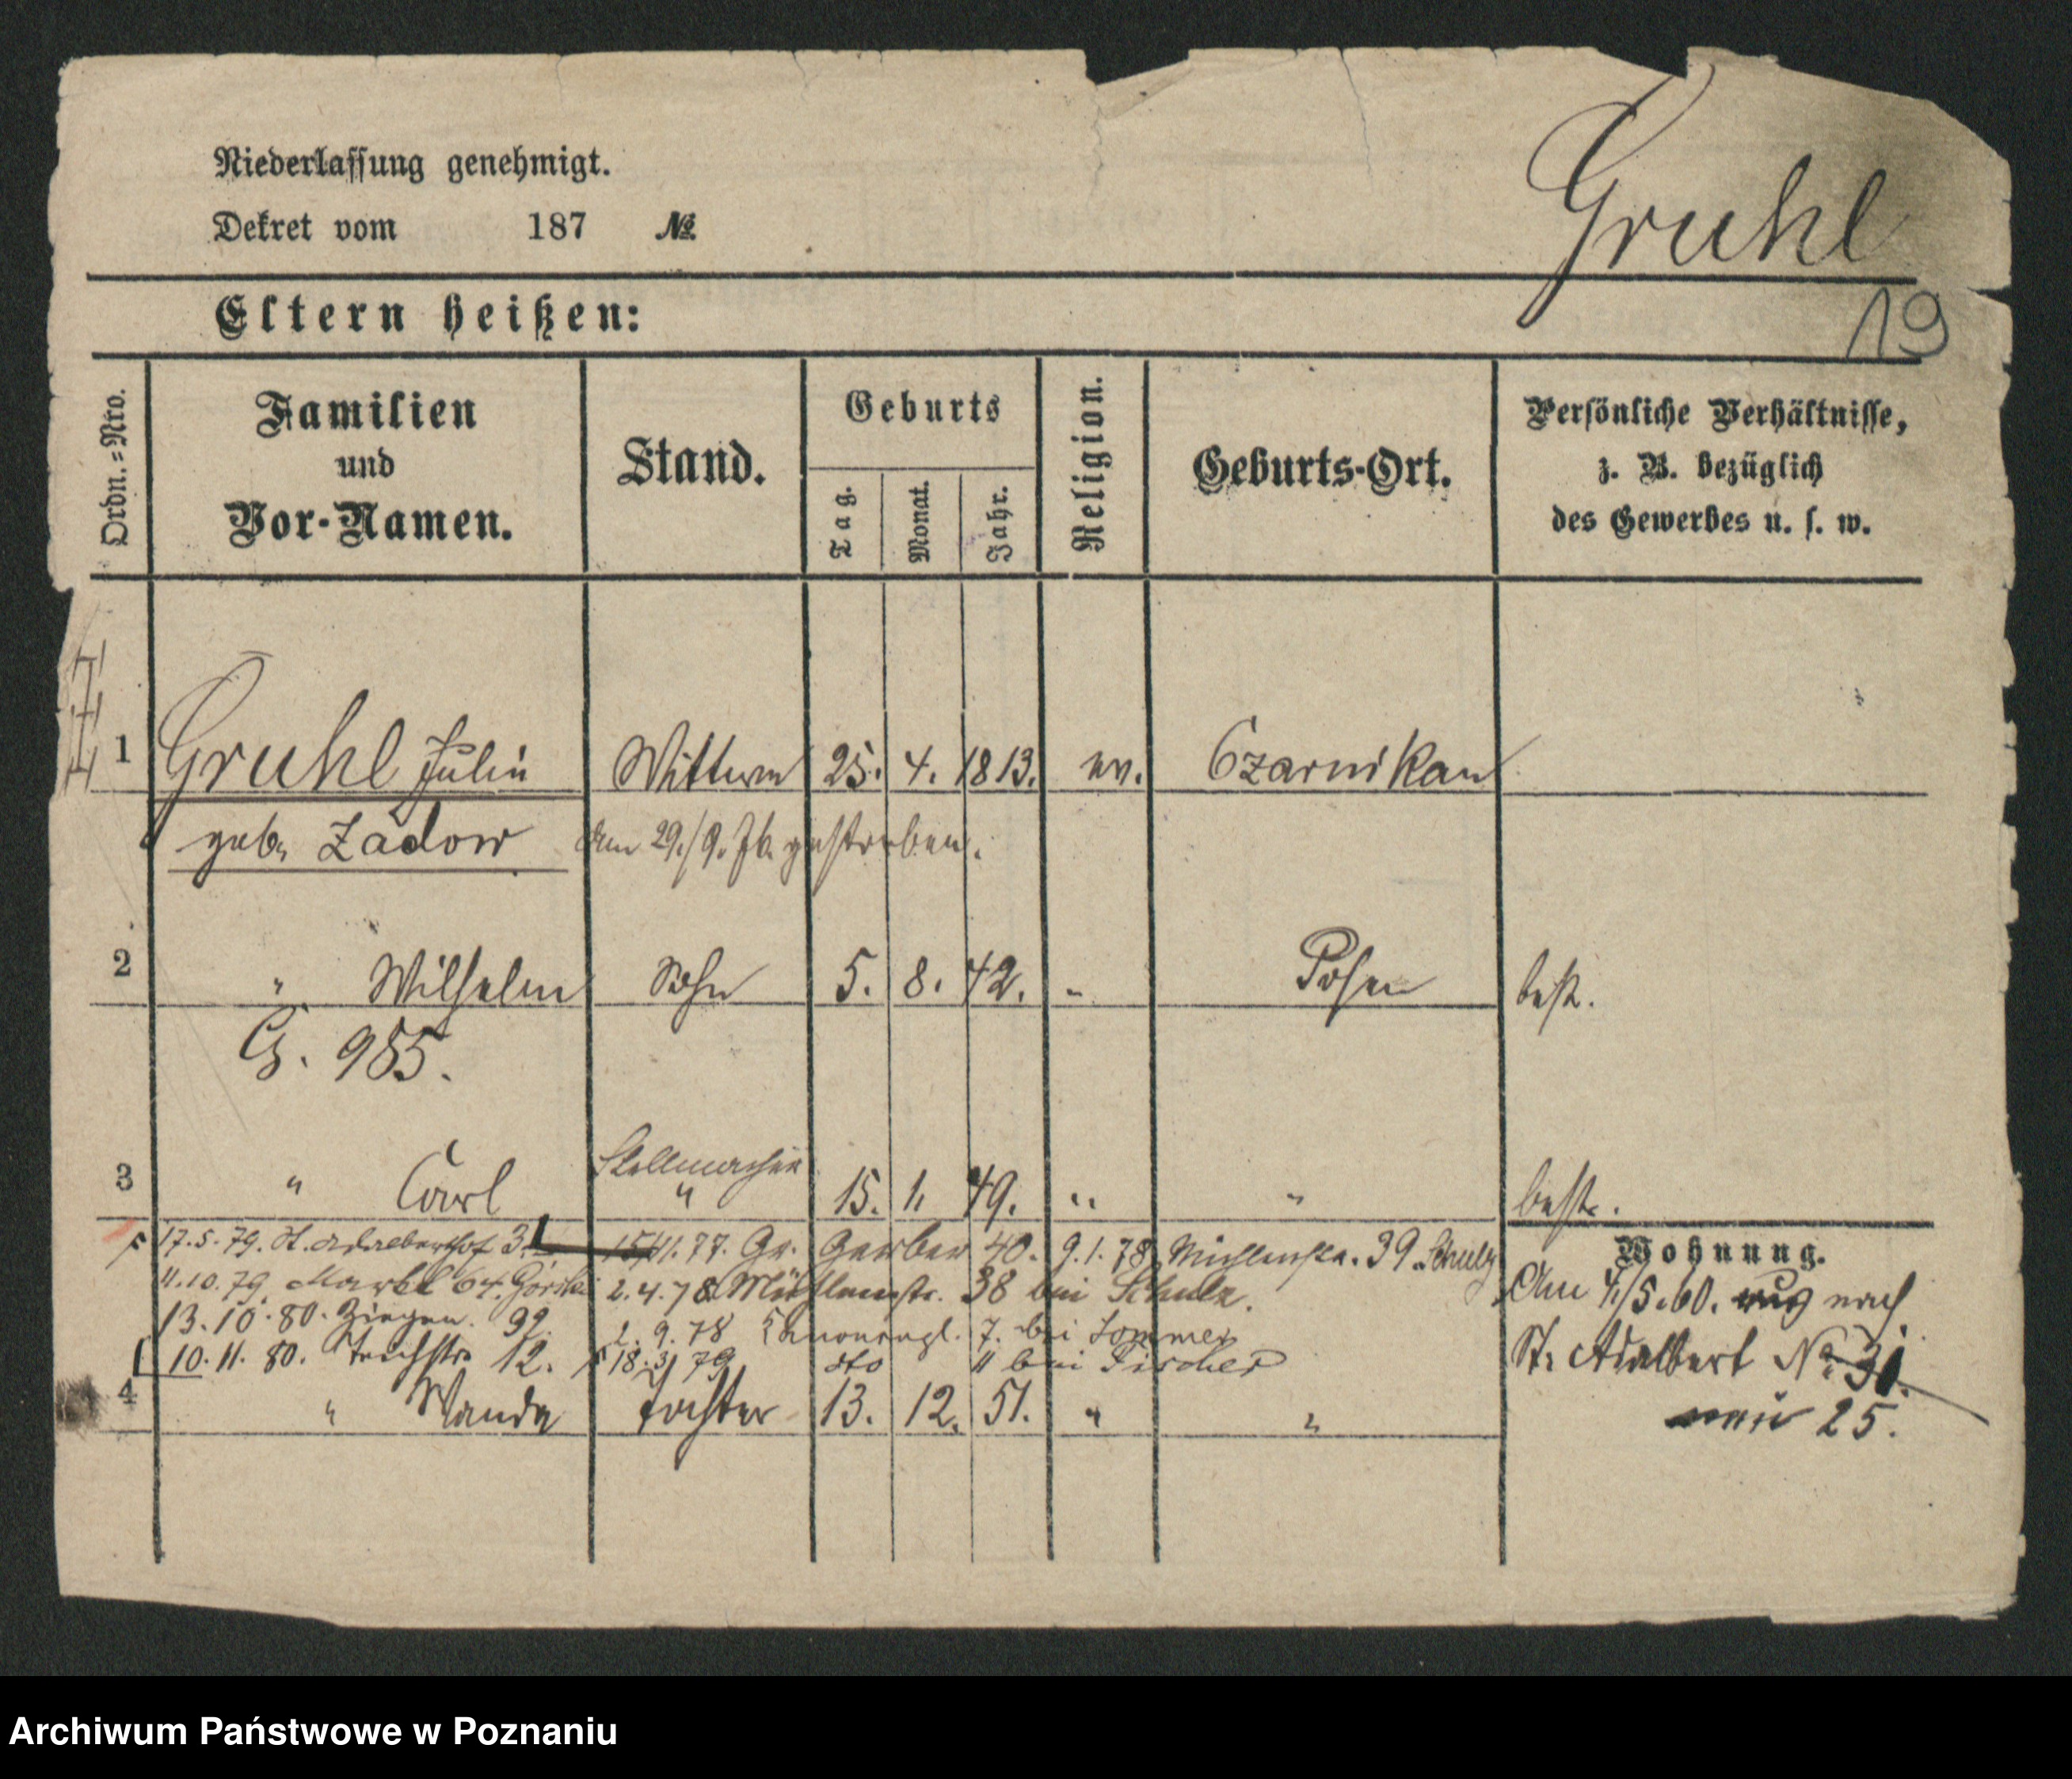 Niederlassung genehmigt.
Dekret vom 187 №
Gruhl
19
Eltern heißen:
Ordn.=Nro.
Familien und Vor-Namen.
Stand.
Geburts
Tag.
Monat.
Jahr.
Religion.
Geburts-Ort.
Persönliche Verhältnisse,
z. B. bezüglich
des Gewerbes u. s. w.
1 Gruhl Julie Wittwe 25. 4. 1813. ev. Czarnikau
geb. Zadow am 29./9. gestorben.
2 " Wilhelm Sohn 5. 8. 42. " Posen best.
G. 985.
Stellmacher
3 " Carl " 15. 1. 49. " " best.
17.5.79. St. Adalberthof 3. 15/11. 77. Gr. Gerber 40. 9.1.78 Mühlenstr. 39. Schulz
11.10.79. Markt 64. Górski 2.4.78 Mühlenstr. 38 bei Schulz.
13.10.80. Ziegen. 2.9.78 7. bei Sommer
10.11.80. Teichstr. 12. 18.3 79 dto 11 bei Fischer
4 " Wanda Tochter 13. 12. 51. " "
Wohnung.
Am 4./5.60. nach
St. Adalbert No 31.
25.
Archiwum Państwowe w Poznaniu